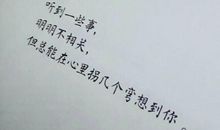 听到一些事,
明明不相关,
但总能在心里拐几个弯想到你。